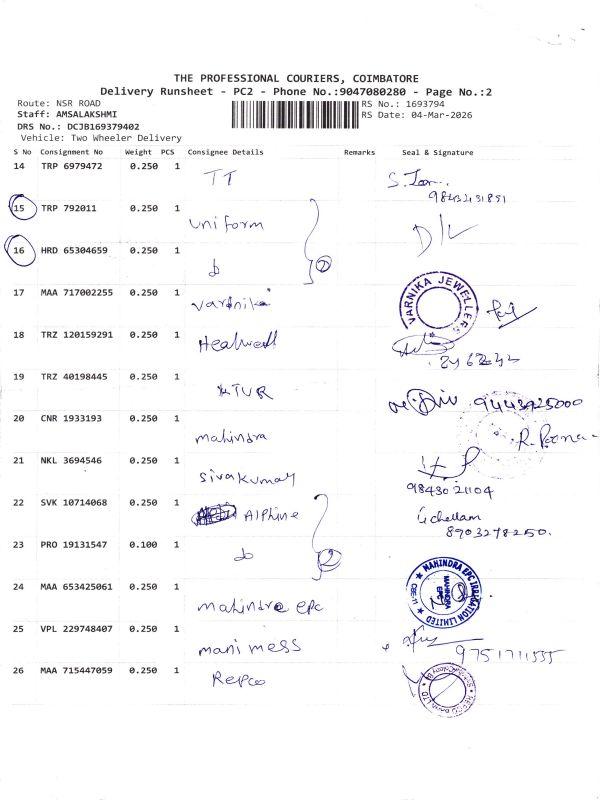 THE PROFESSIONAL COURIERS, COIMBATORE
Delivery Runsheet - PC2 - Phone No.:9047080280 - Page No.:2
Route: NSR ROAD
RS No.: 1693794
Staff: AMSALAKSHMI
RS Date: 04-Mar-2026
DRS No.: DCJB169379402
Vehicle: Two Wheeler Delivery
S No Consignment No Weight PCS Consignee Details Remarks Seal & Signature
14 TRP 6979472 0.250 1 TT
9843431851
15 TRP 792011 0.250 1 uniform
16 HRD 65304659 0.250 1
17 MAA 717002255 0.250 1 Varnika
VARNIKA JEWELLERS
18 TRZ 120159291 0.250 1 Healwell
19 TRZ 40198445 0.250 1 TVR
20 CNR 1933193 0.250 1 mahindra
21 NKL 3694546 0.250 1 Sivakumar
9843021104
22 SVK 10714068 0.250 1 Alphine
8903278250.
23 PRO 19131547 0.100 1
24 MAA 653425061 0.250 1 mahindra epc
MAHINDRA EPC IRRIGATION LIMITED
25 VPL 229748407 0.250 1 mani mess
26 MAA 715447059 0.250 1 Repco